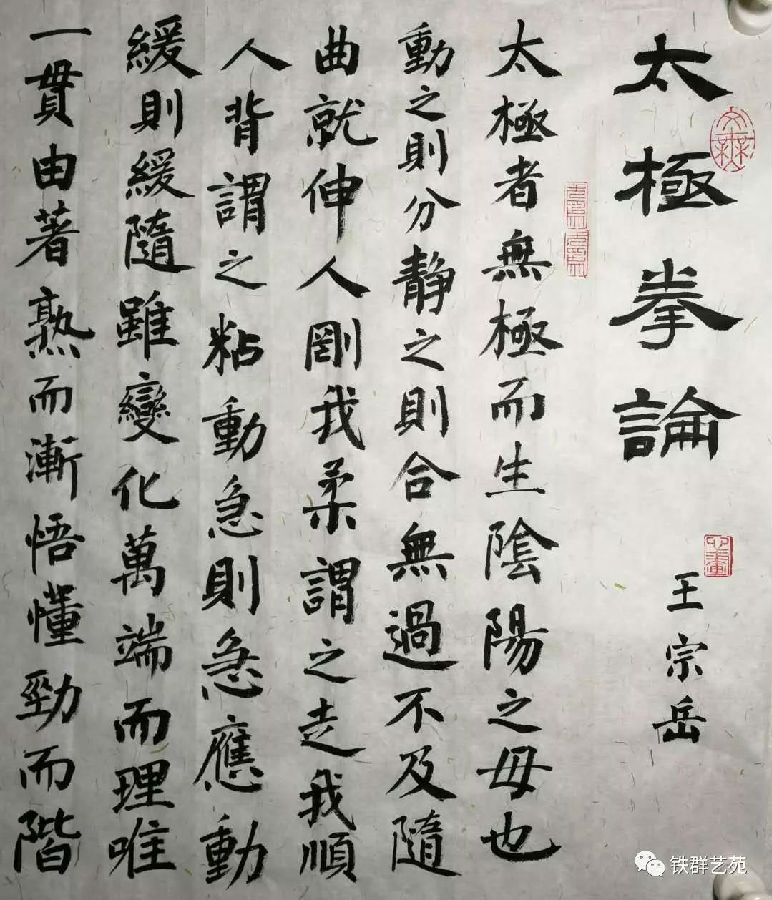 太極拳論
王宗岳
太極者無極而生陰陽之母也
動之則分静之則合無過不及隨
曲就伸人剛我柔謂之走我順
人背謂之粘動急則急應動
緩則緩隨雖變化萬端而理唯
一貫由著熟而漸悟懂勁而階
铁群艺苑